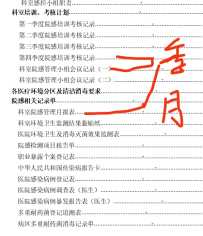 科室感控小组职责
科室培训、考核计划
第一季度院感培训考核记录
第二季度院感培训考核记录
第三季度院感培训考核记录
第四季度院感培训考核记录
科室院感管理小组会议记录（一）
科室院感管理小组会议记录（二）
各医疗环境分区及清洁消毒要求
院感相关记录单
科室院感管理日报表
环境卫生监测结果粘贴纸
医院环境卫生及消毒灭菌效果监测表
院感检测项目报告单
职业暴露个案登记表
中华人民共和国传染病报告卡
医院感染病例登记表
医院感染病例调查表（医生）
医院感染病例暴发报告表（医生）
多重耐药菌登记追溯表
病区多重耐药菌消毒记录单
季
月